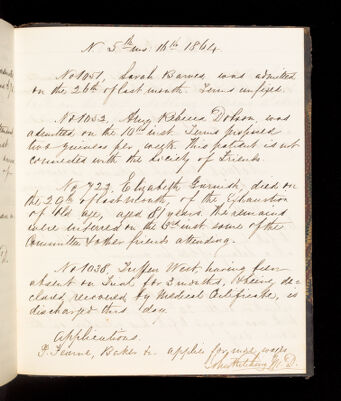 N. 5th mo. 16th 1864
No 1051, Sarah Barnes was admitted
on the 26th of last month. Terms unfixed.
No 1052, Amy Rebecca Dobson, was
admitted on the 10th inst. Terms proposed
two guineas per week. This patient is not
connected with the Society of Friends.
No 722, Elizabeth Gurnish, died on
the 29th of last month, of the Exhaustion
of Old age, aged 81 years. The remains
were interred on the 6th inst some of the
Committee & other friends attending.
No 1038, Tuffen West, having been
absent on Trial for 3 months, & being de=
clared recovered by Medical Certificate, is
discharged this day.
Applications.
Baker &c. applies for
M.D.